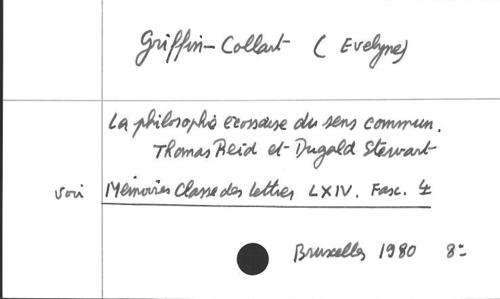 Griffin-Collart (Evelyne)
La philosophie écossaise du sens commun.
Thomas Reid et Dugald Stewart
voir Mémoires Classe des lettres LXIV. Fasc. 4
Bruxelles 1980 8°